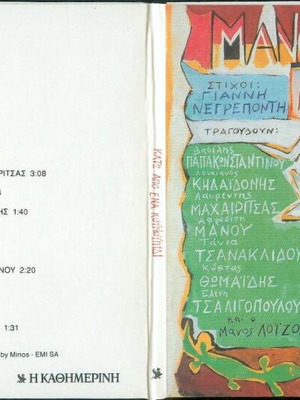 ΡΙΤΣΑΣ 3:08
ΗΣ 1:40
ΝΟΥ 2:20
1:31
by Minos - EMI SA
Η ΚΑΘΗΜΕΡΙΝΗ
ΚΑΤΩ ΑΠΟ ΕΝΑ ΚΟΥΝΟΥΠΙΔΙ
ΜΑΝ
ΣΤΙΧΟΙ:
ΓΙΑΝΝΗ
ΝΕΓΡΕΠΟΝΤΗ
ΤΡΑΓΟΥΔΟΥΝ:
Βασίλης
ΠΑΠΑΚΩΝΣΤΑΝΤΙΝΟΥ
Λουκιανός
ΚΗΛΑΪΔΟΝΗΣ
Λαυρέντης
ΜΑΧΑΙΡΙΤΣΑΣ
Αφροδίτη
ΜΑΝΟΥ
Τάνια
ΤΣΑΝΑΚΛΙΔΟΥ
Κώστας
ΘΩΜΑΪΔΗΣ
Ελένη
ΤΣΑΛΙΓΟΠΟΥΛΟΥ
και ο
Μάνος ΛΟΪΖΟ